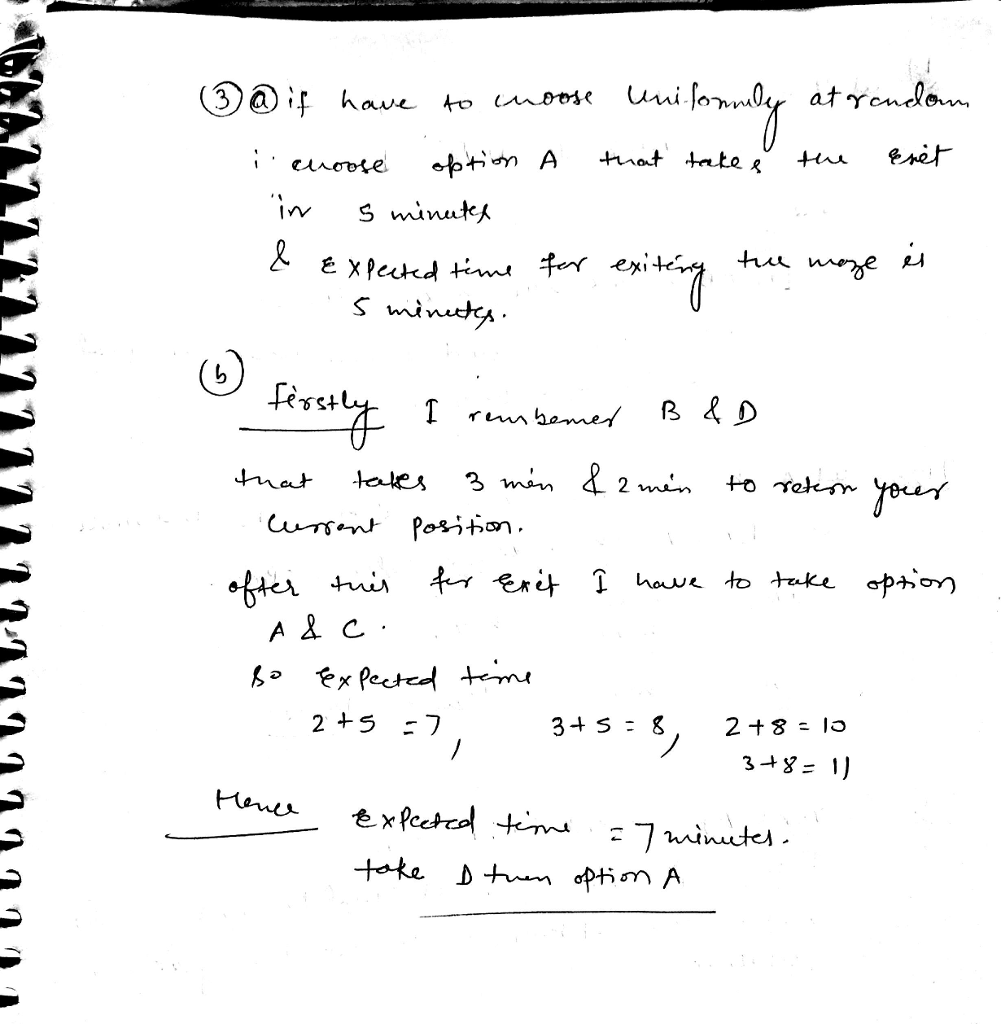 ③ ⓐ if have to choose Uniformly at random
i choose option A that takes the Exit
in 5 minutes
& Expected time for exiting the maze is
5 minutes.
ⓑ
firstly I rembemer B & D
that takes 3 min & 2 min to return your
current position.
after this for Exit I have to take option
A & C.
So Expected time
2 + 5 = 7, 3 + 5 = 8, 2 + 8 = 10
3 + 8 = 11
Hence Expected time = 7 minutes.
take D then option A